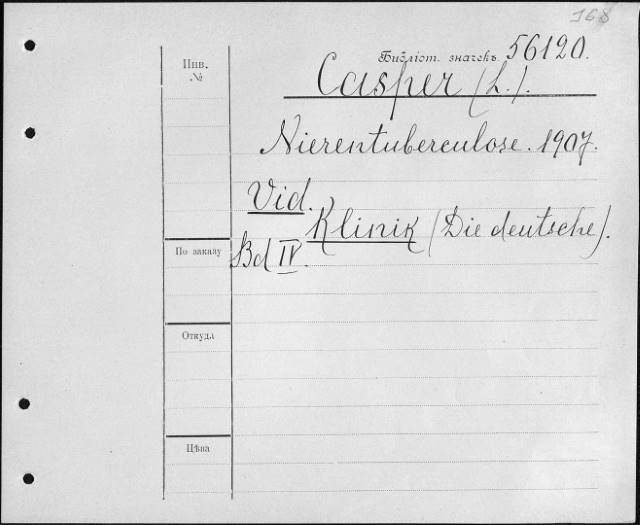 168
Библіот. значекъ 56120.
Инв.
№
Casper (L.).
Nierentuberculose. 1907.
Vid.
Klinik (Die deutsche).
По заказу
Bd IV.
Откуда
Цѣна